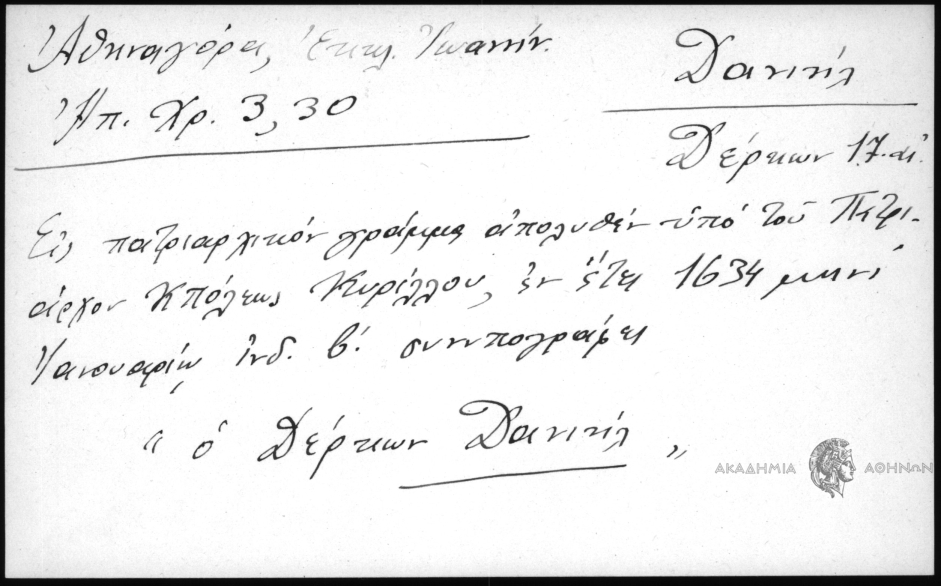 Ἀθηναγόρας, Ἐκκλ. Ἰωαννίν.
Ἠπ. Χρ. 3, 30
Δανιήλ
Δέρκων 17. αἰ.
Εἰς πατριαρχικόν γράμμα ἀπολυθέν ὑπό τοῦ Πατρι-
άρχου Κπόλεως Κυρίλλου, ἐν ἔτει 1634 μηνί
Ἰανουαρίῳ ἰνδ. β΄. συνυπογράφει
" ὁ Δέρκων Δανιήλ "
ΑΚΑΔΗΜΙΑ ΑΘΗΝΩΝ